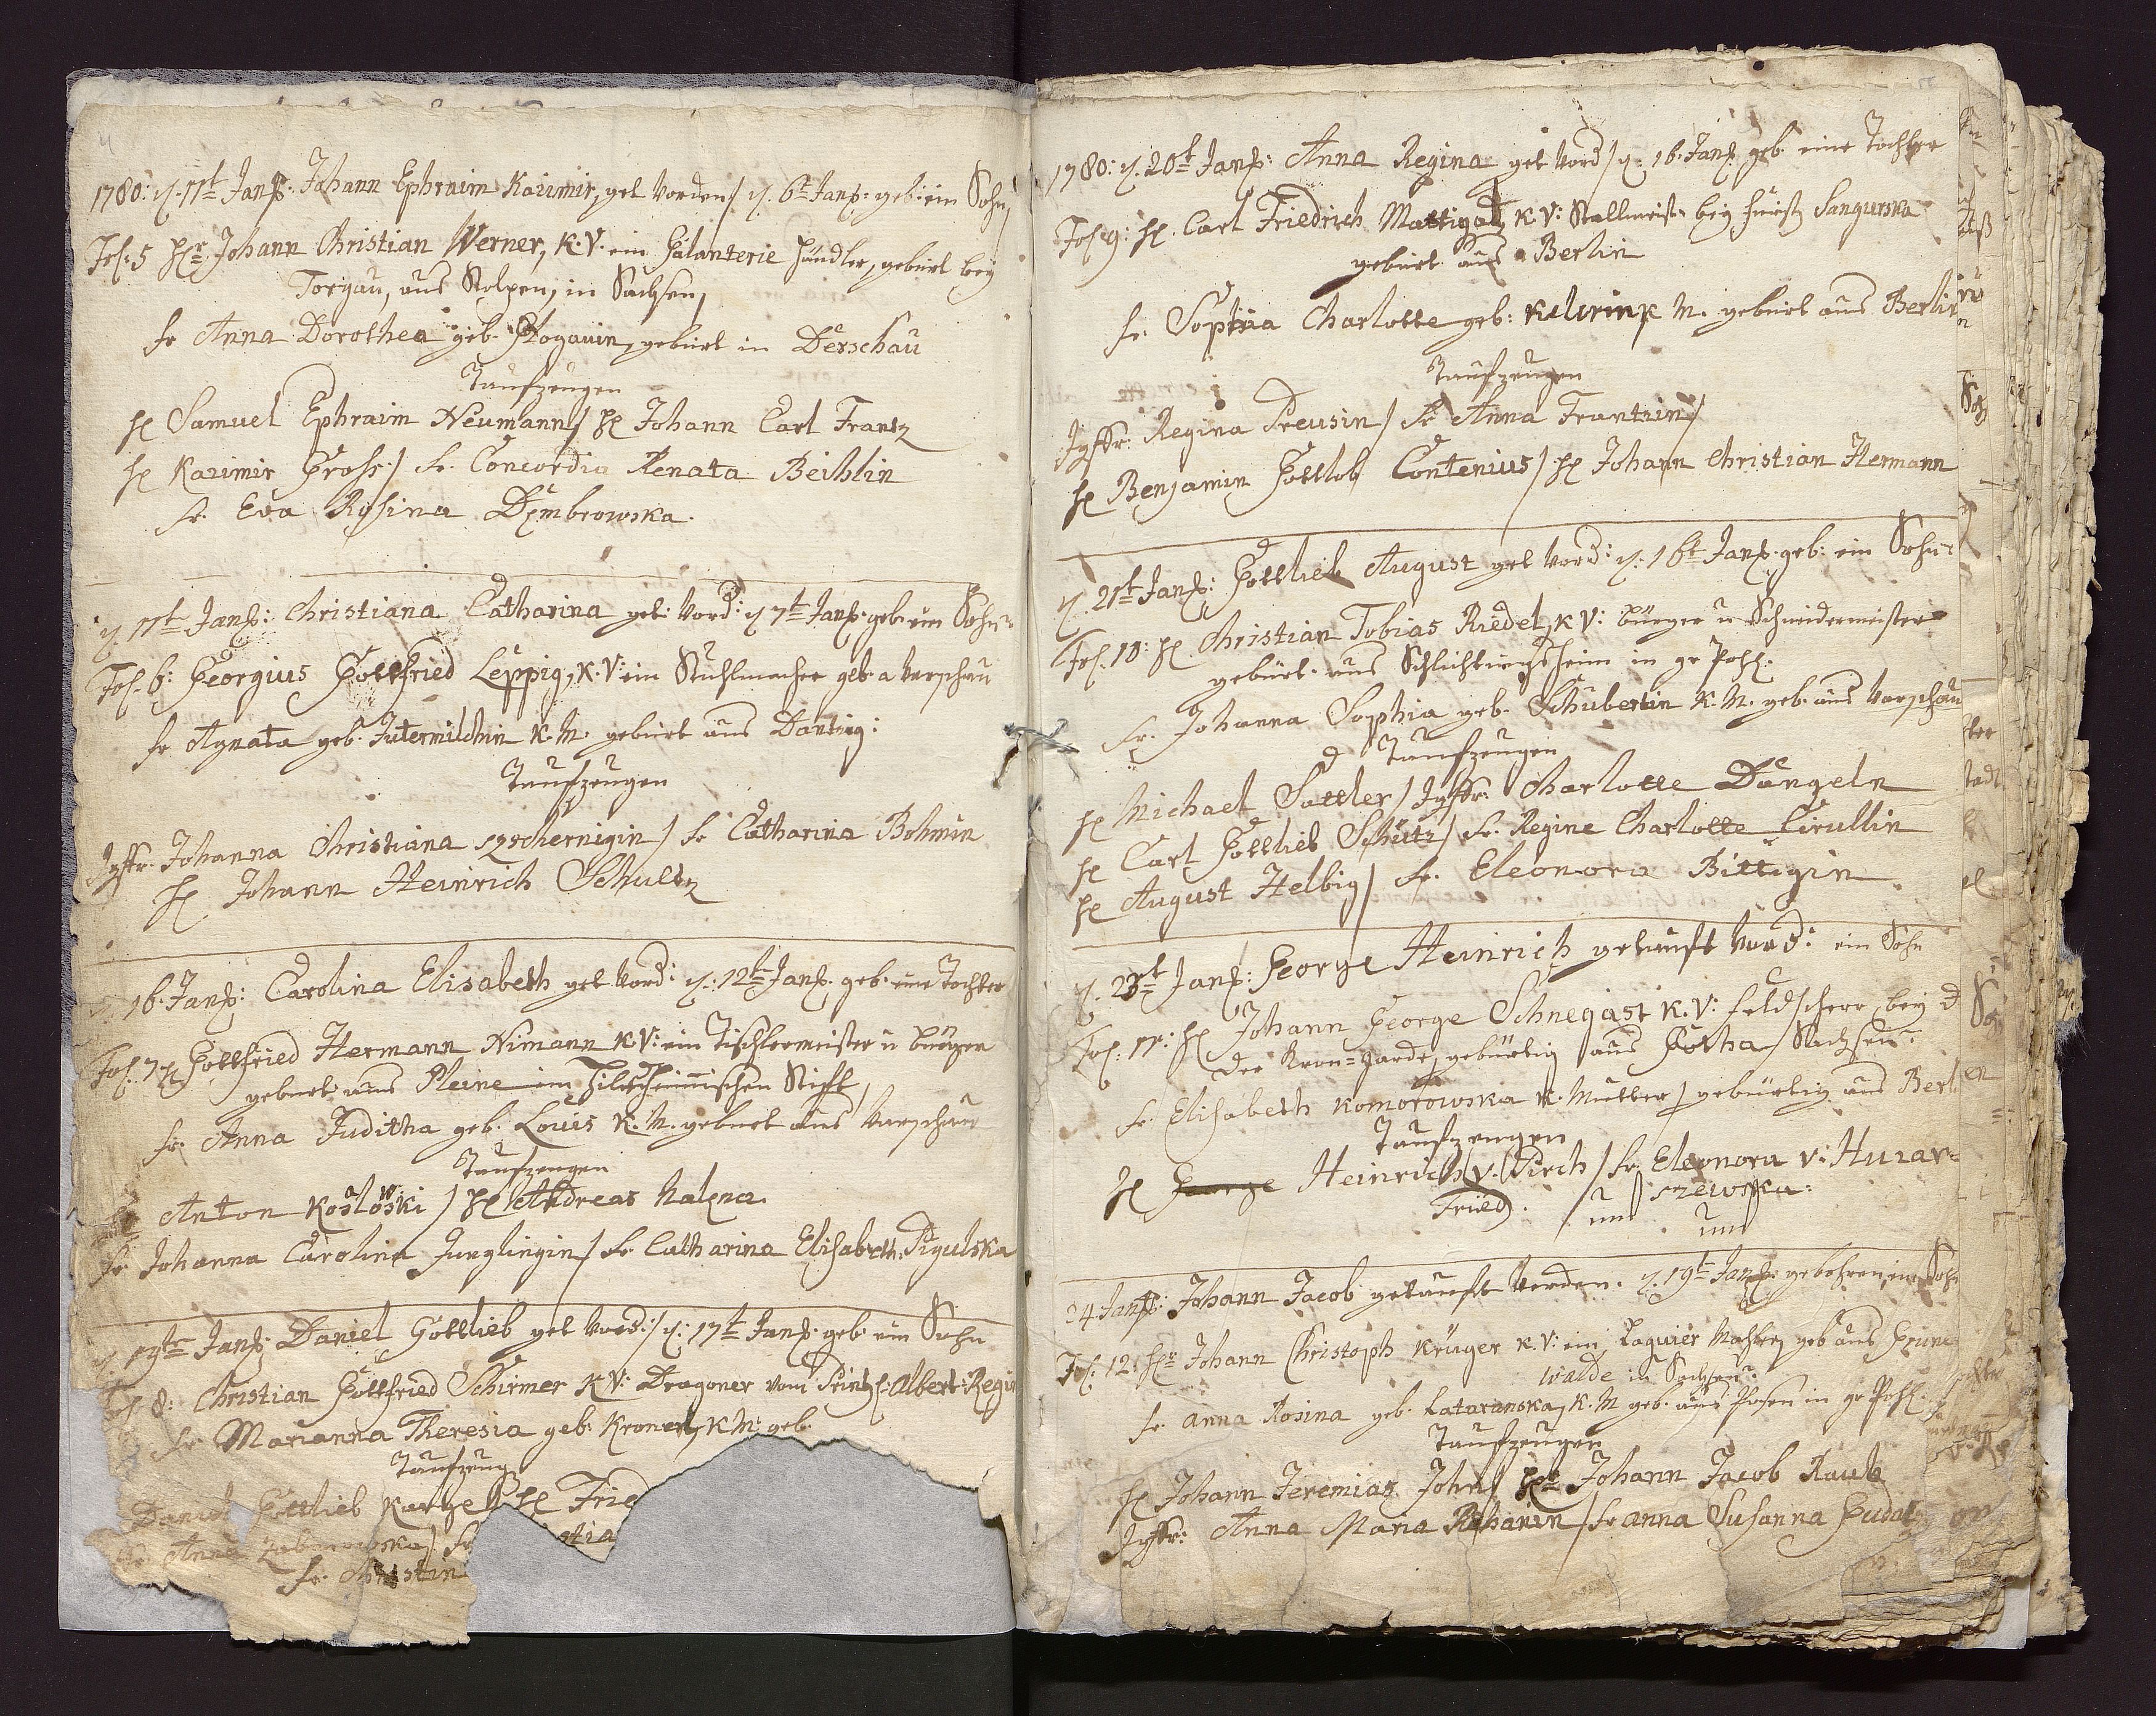 1780: d. 11t Janr. Johann Ephraim Kazimir, get worden / d. 6t Janr: geb: ein Sohn,
Fol: 5 Hr: Johann Christian Werner, K. V. ein Galanterie Händler, gebürt bey
Torgau, aus Stolpen, in Sachsen,
fr Anna Dorothea geb. gebürt in Derschau
Taufzeugen
H Samuel Ephraim Neumann / H Johann Carl Frantz
H Kazimir Gross / fr. Concordia Renata Beihlin
fr. Eva Rosina Dembrowska.
d 11t Janr: Christiana Catharina get: word: d 7t Janr. geb. ein Sohn
Fol. 6: Georgius Gottfried Leppig, K. V: ein Stuhlmacher geb. a Warschau
fr Agnata geb. Jutermilchin K. M. gebürt aus Dantzig:
Taufzeugen
Jgffr. Johanna Christiana szschernigin / fr Catharina Bohmin
H Johann Heinrich Schultz
d. 16. Janr: Carolina Elisabeth get word: d: 12t Janr. geb. eine Tochter
Fol. 7 H Gottfried Hermann Nimann K V: ein Tischlermeister u bürger
geburt aus Pleine im Hildesheimischen Stifft,
fr. Anna Juditha geb. Louis K. M. geburt aus Warschau
Taufzeugen
Anton Kosloski / H Andreas Nalzna
fr Johanna Carolina Junglingin / fr Catharina Elisabeth Pigulska
d. 19t Janr: Daniel Gottlieb get word: / d: 17t Janr. geb. ein Sohn
Fol 8: Christian Gottfried Schirmer K V: Dragoner vom Printz: Albert: Regi
fr Marianna Theresia geb: Kronert, K M: geb.
Taufzeug
Daniel Gottlieb H Frie
fr. Anna fr stia
fr. Christin
1780: d. 20t Janr: Anna Regina get word / d: 16. Janr. geb. eine Tochter
Fol: 9: H. Carl Friedrich Mattigat, K. V: Stallmeistr bey fürst Sangurska
gebürt aus Berlin
fr. Sophia Charlotte geb: M. gebürt aus Berlin
Taufzeugen
Jgffr: Regina Preusin / fr Anna Frantzin /
H Benjamin Gottlob Contenius / H Johann Christian Hermann
d. 21t Janr: Gottlieb August get word: d: 16t Janr. geb: ein Sohn
Fol. 10: H Christian Tobias Riedel, K V: bürger u Schneidermeister
gebürt. aus Schlichtingsheim in gr Pohl:
fr. Johanna Sophia geb. Schubertin K. M. geb. aus Warschau
Taufzeugen
H Michael Sattler / Jgffr: Charlotte Dangeln
H Carl Gottlieb Schütz / fr. Regine Charlotte Cirullin
H August Helbig / fr. Eleonora Bittigin
d. 23t Janr: George Heinrich getauft word: ein Sohn
Fol. 11: H Johann George Schnegast K. V: feldscherr bey d
der Kron=garde, gebürtig aus Gotha / Sachsen:
fr Elisabeth Komorowska K. Mutter / gebürtig aus Berl
Taufzeugen
H George Heinrich v. Pirch / fr. Eleonora v: Huzar=
Fried. szewska:
24. Janr: Johann Jacob getauft worden. d. 19t Janr. gebohren, ein Sohn
Fol: 12: Hr Johann Christoph Krüger K. V: ein Laquier Mahler, geb aus Grüne
walde in Sachsen:
fr. Anna Rosina geb. Lataranska, K. M geb. aus Posen in gr Pohl.
Taufzeugen
H Johann Jeremias John / Hr Johann Jacob Raub
Jgffr: Anna Maria / fr Anna Susanna